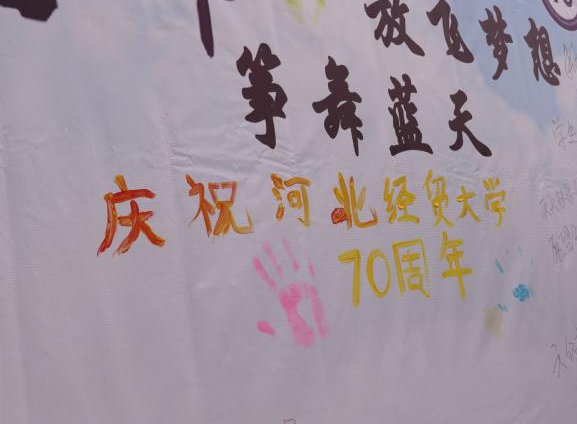 放飞梦想
筝舞蓝天
庆祝河北经贸大学
70周年